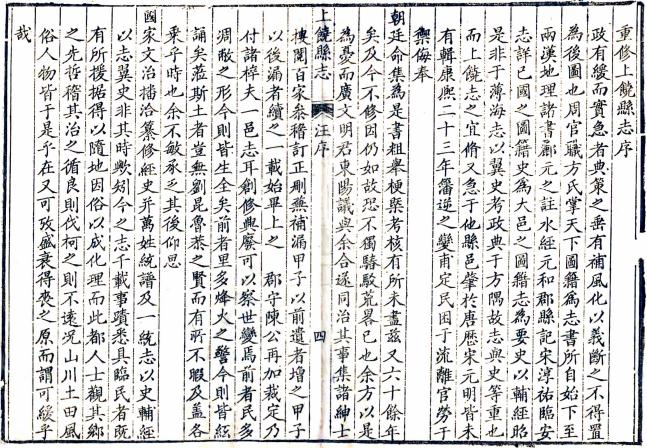 重修上饒縣志序
政有緩而實急者典策之垂有補風化以義斷之不得置
為後圖也周官職方氏掌天下圖籍為志書所自始下至
兩漢地理諸書酈元之註水經元和郡縣記宋淳祐臨安
志詳已國之圖籍史為大邑之圖籍志為要史以輔經昭
是非于薄海志以翼史考政典于方隅故志與史等重也
而上饒志之宜脩又急于他縣邑肇於唐歷宋元明皆未
有輯康熙二十三年籓逆之變甫定民困于流離官勞于
禦侮奉
朝廷命集為是書粗舉梗槩考核有所未盡茲又六十餘年
矣及今不修因仍如故恐不獨駱駮荒畧已也余方以是
為憂而廣文明君東陽議與余合遂同治其事集諸紳士
上饒縣志 汪序 四
摟閣百家叅稽訂正刪蕪補漏甲子以前遺者增之甲子
以後漏者續之一載始畢上之 郡守陳公再加裁定乃
付諸梓夫一邑志耳創修興廢可以察世變焉前者民多
凋敝之形今則皆生全矣前者里多烽火之警今則皆絃
誦矣蒞斯土者豈無劉昆魯恭之賢而有所不暇及盖各
乗乎時也余不敏承乏其後仰思
國家文治掞洽纂修經史并萬姓統譜及一統志以史輔經
以志翼史非其時歟矧今之志千載事蹟悉具臨民者既
有所援据得以隨地因俗以成化理而此都人士觀其鄉
之先哲稽其治之循良則伐柯之則不遠況山川土田風
俗人物皆于是乎在又可攷盛衰得喪之原而謂可緩乎
哉